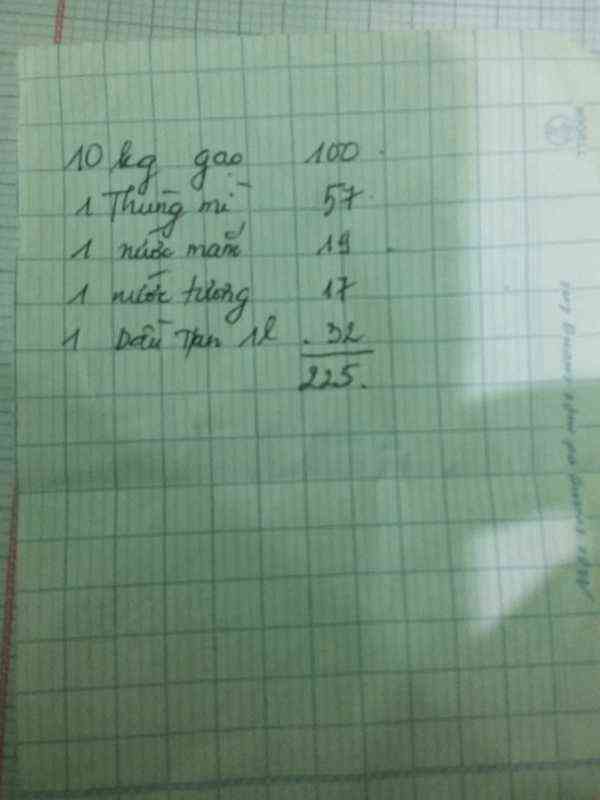 10 kg gạo 100
1 Thùng mì 57
1 nước mắm 19
1 nước tương 17
1 Dầu 1l 32
225.